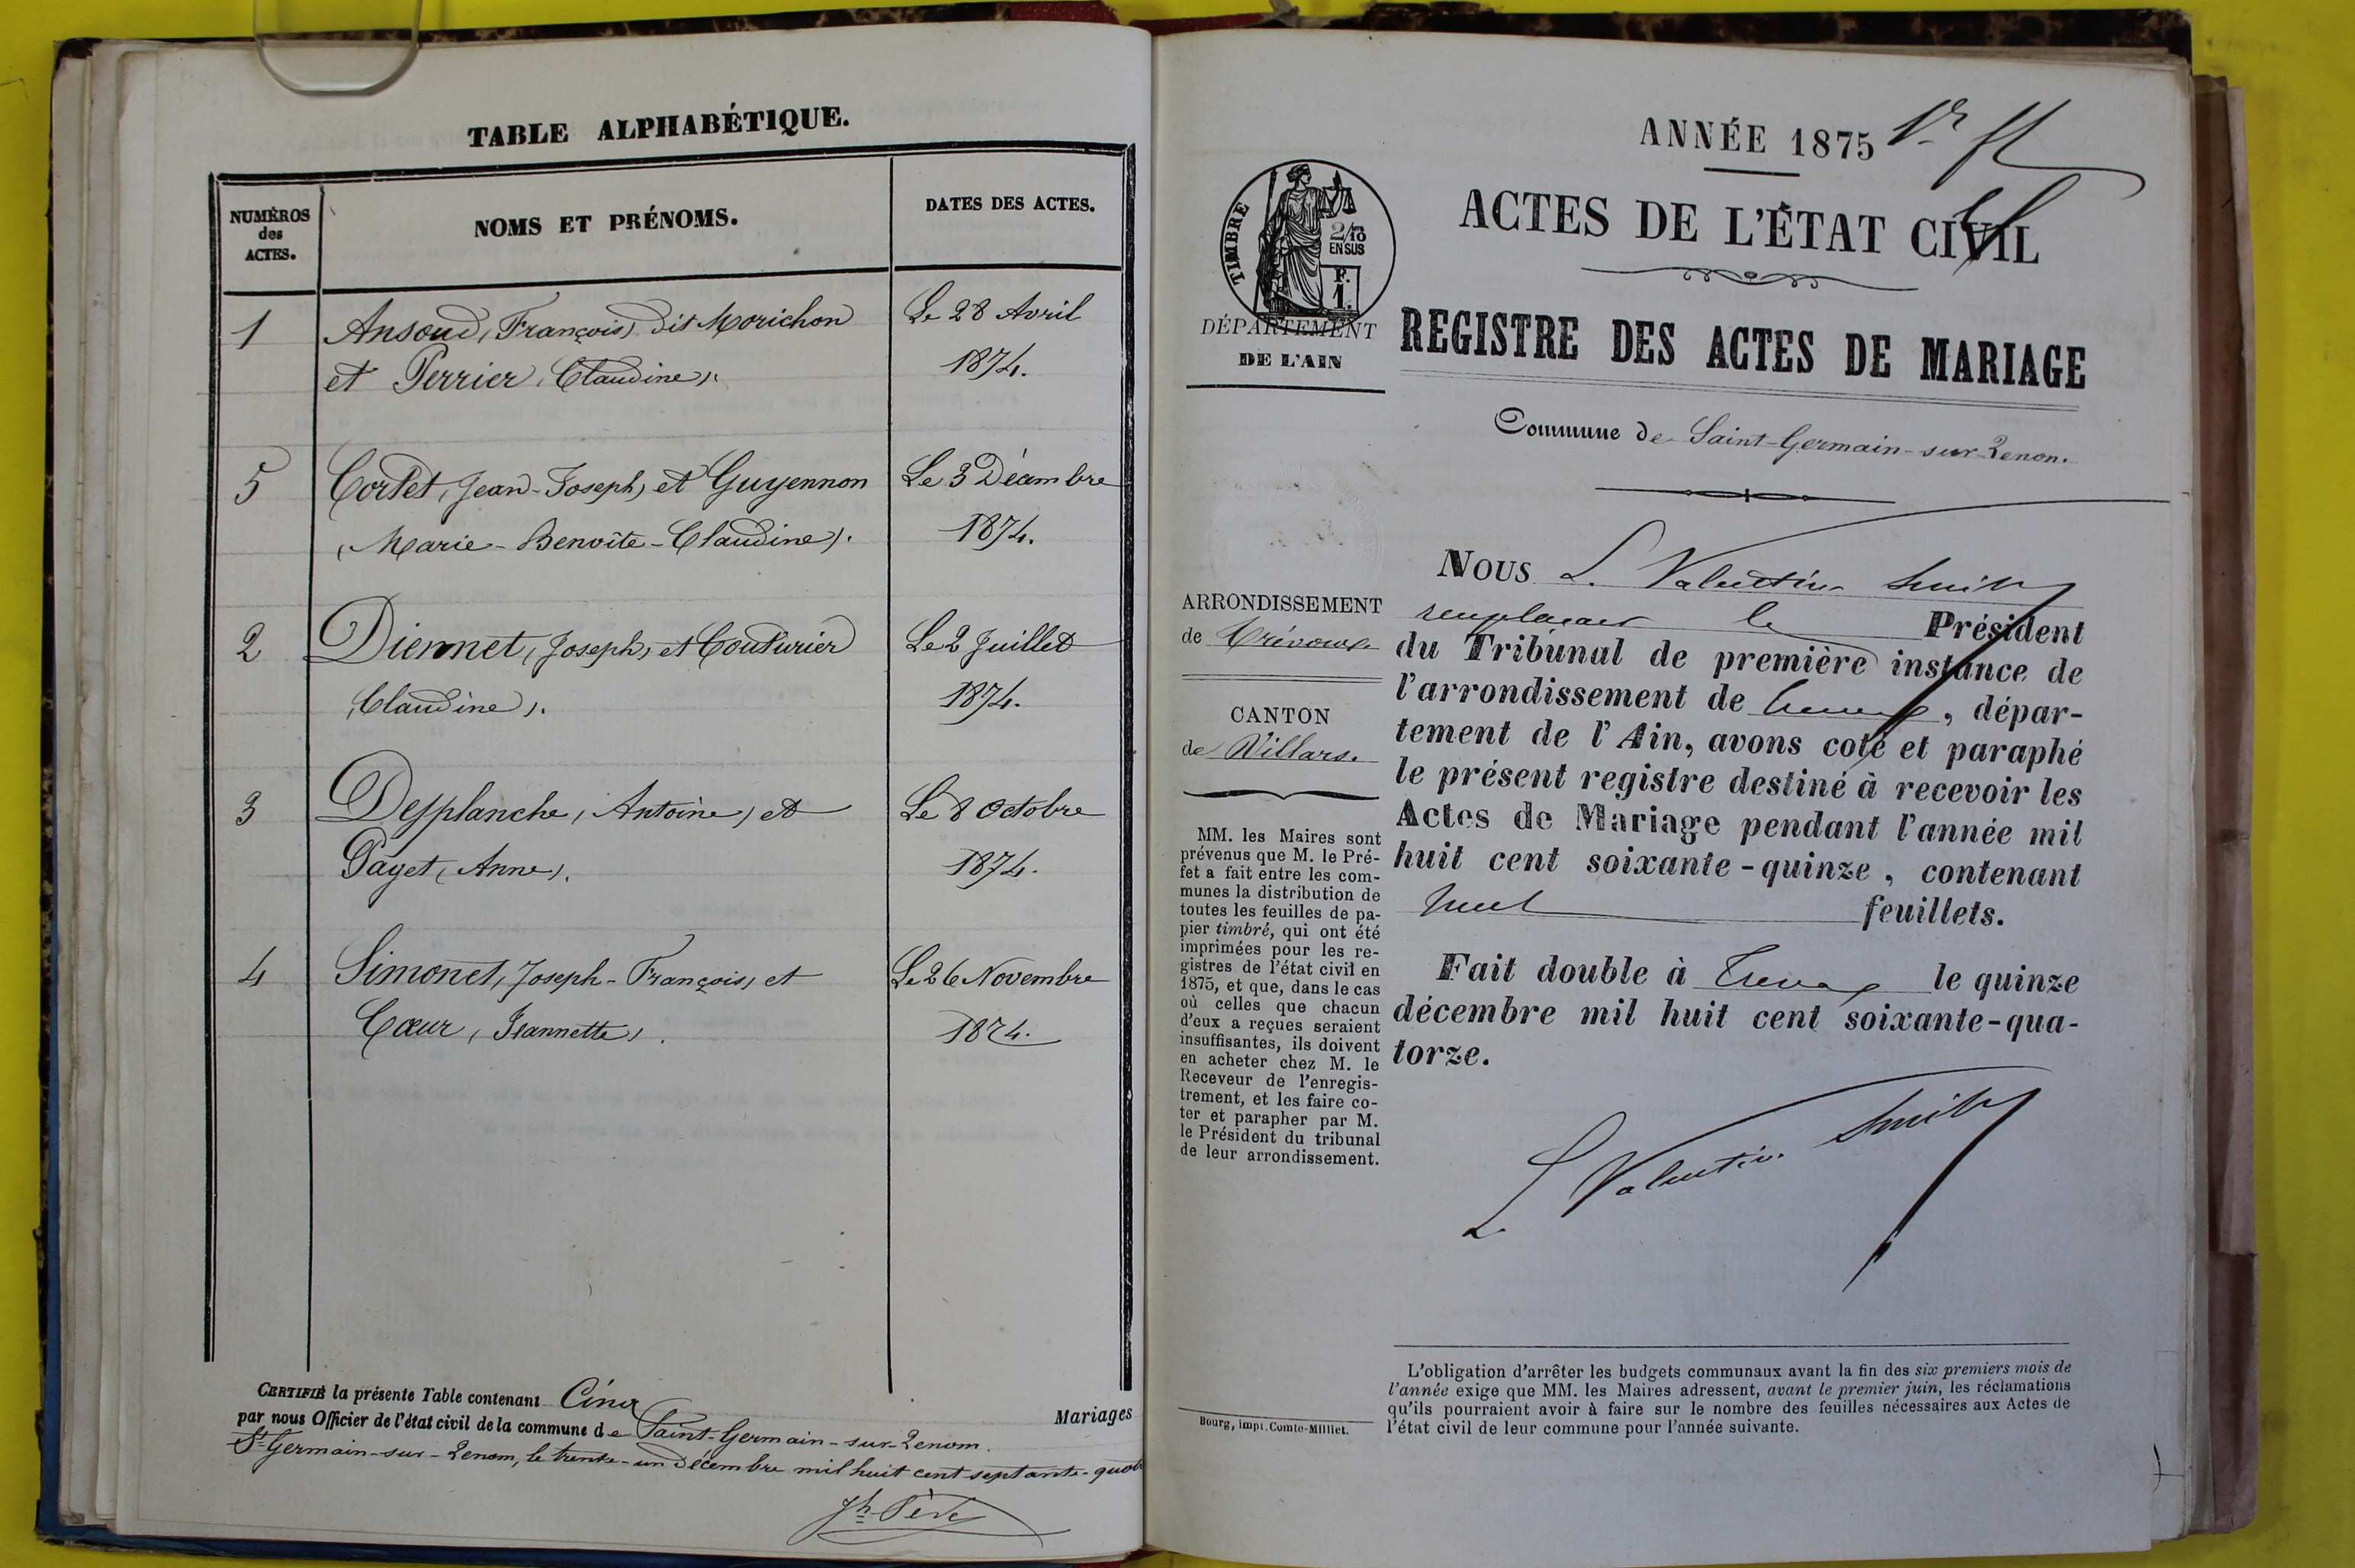 TABLE ALPHABÉTIQUE.
NUMÉROS
des
ACTES.
NOMS ET PRÉNOMS.
DATES DES ACTES.
1
Ansoud, (François), dit Morichon
Le 28 Avril
et Perrier (Claudine).
1874.
5
Cortet, (Jean-Joseph) et Guyennon
Le 3 Décembre
(Marie-Benoîte-Claudine).
1874.
2
Diennet, (Joseph) et Couturier
Le 2 Juillet
(Claudine).
1874.
3
Desplanche, (Antoine) et
Le 8 Octobre
Payet, (Anne).
1874.
4
Simonet, (Joseph-François) et
Le 26 Novembre
Cœur, (Jeannette).
1874.
CERTIFIÉ la présente Table contenant Cinq
Mariages
par nous Officier de l'état civil de la commune de Saint-Germain-sur-Renom.
St-Germain-sur-Renom, le trente-un Décembre mil huit cent septante-quat
ANNÉE 1875 1r
ACTES DE L'ÉTAT CIVIL
TIMBRE
2/10
EN SUS
F.
1.
DÉPARTEMENT
DE L'AIN
REGISTRE DES ACTES DE MARIAGE
Commune de Saint-Germain-sur-Renon.
ARRONDISSEMENT
de Trévoux
CANTON
de Villars.
MM. les Maires sont
prévenus que M. le Pré-
fet a fait entre les com-
munes la distribution de
toutes les feuilles de pa-
pier timbré, qui ont été
imprimées pour les re-
gistres de l'état civil en
1875, et que, dans le cas
où celles que chacun
d'eux a reçues seraient
insuffisantes, ils doivent
en acheter chez M. le
Receveur de l'enregis-
trement, et les faire co-
ter et parapher par M.
le Président du tribunal
de leur arrondissement.
Bourg, impr. Comte-Milliet.
NOUS L. Valentin Smith
remplaçant le Président
du Tribunal de première instance de
l'arrondissement de Trévoux, dépar-
tement de l'Ain, avons coté et paraphé
le présent registre destiné à recevoir les
Actes de Mariage pendant l'année mil
huit cent soixante-quinze, contenant
huit feuillets.
Fait double à Trévoux le quinze
décembre mil huit cent soixante-qua-
torze.
L Valentin Smith
L'obligation d'arrêter les budgets communaux avant la fin des six premiers mois de
l'année exige que MM. les Maires adressent, avant le premier juin, les réclamations
qu'ils pourraient avoir à faire sur le nombre des feuilles nécessaires aux Actes de
l'état civil de leur commune pour l'année suivante.